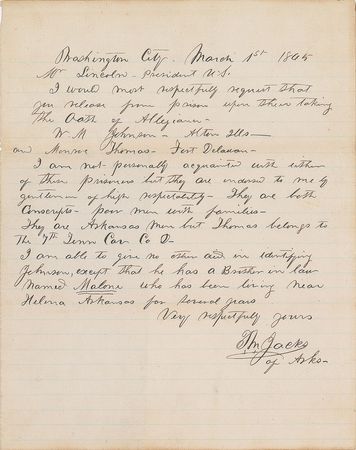 Washington City. March 1st 1865
Mr Lincoln - President U.S.
I would most respectfully request that
you release from prison upon their taking
the Oath of Allegiance -
W. M. Johnson - Alton Ills -
and Monroe Thomas - Fort Delaware -
I am not personally acquainted with either
of these prisoners but they are endorsed to me by
gentlemen of high respectability - They are both
Conscripts - poor men with families -
They are Arkansas men but Thomas belongs to
the 7th Tenn Cav Co D -
I am able to give no other aid in identifying
Johnson, except that he has a Brother in law
named Malone who has been living near
Helena Arkansas for several years
Very respectfully yours
T.M. Jacks
of Arks -